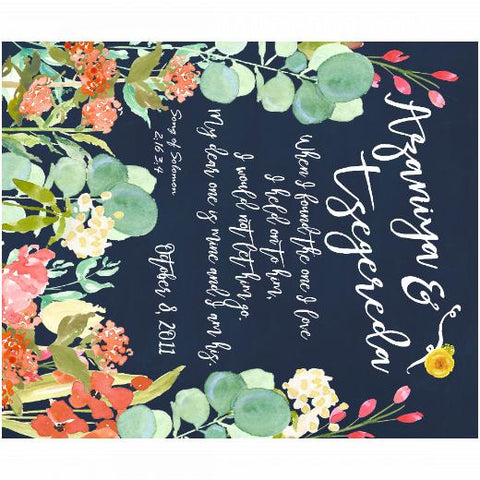 Azaniya &
Tsegereda
When I found the one I love
I held onto him,
I would not let him go.
My dear one is mine and I am his.
Song of Solomon
2:16 3:4
October 8, 2011